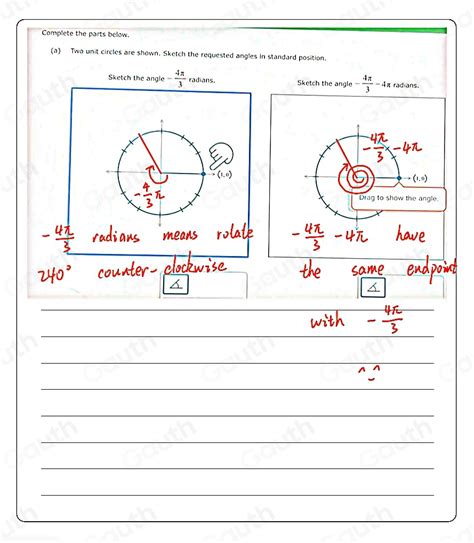 Complete the parts below.
(a) Two unit circles are shown. Sketch the requested angles in standard position.
Sketch the angle -4π/3 radians.
Sketch the angle -4π/3 - 4π radians.
(1, 0)
-4/3 π
-4π/3 -4π
(1, 0)
Drag to show the angle.
-4π/3 radians means rotate
240° counter-clockwise
-4π/3 -4π have
the same endpoint
with -4π/3
Gauth